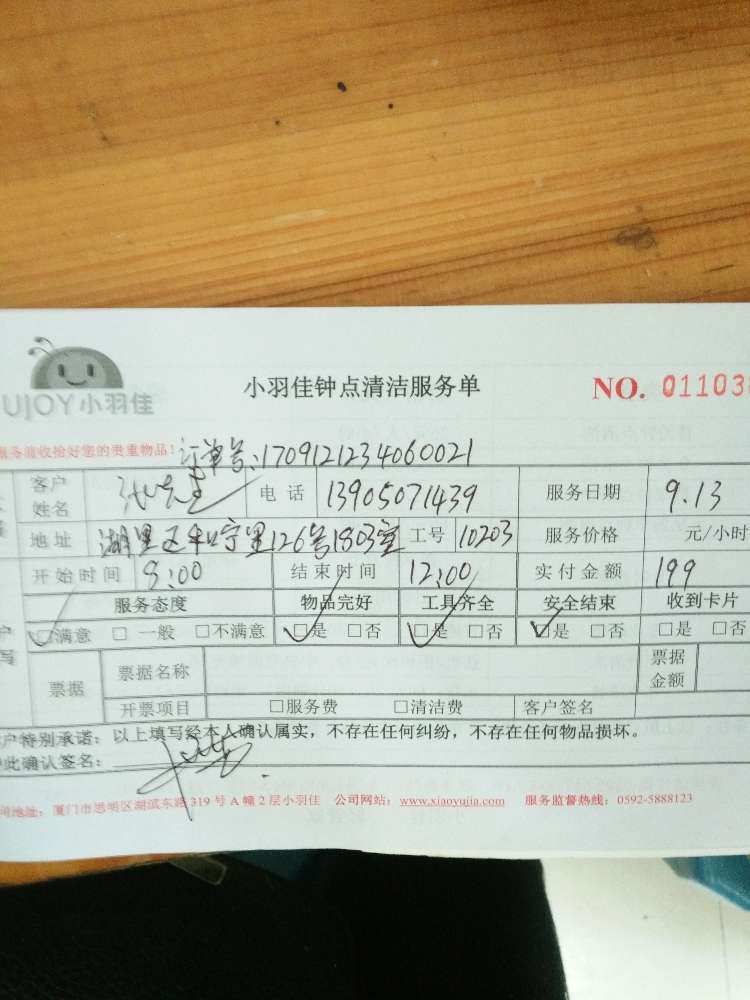 小羽佳钟点清洁服务单 NO. 01103
UJOY小羽佳
服务前收拾好您的贵重物品! 订单号:1709121234060021
客户姓名 张先生 电话 13905071439 服务日期 9.13
地址 湖里区和宁里126号1803室 工号 10203 服务价格 元/小时
开始时间 9:00 结束时间 12:00 实付金额 199
服务态度 物品完好 工具齐全 安全结束 收到卡片
☑满意 □一般 □不满意 ☑是 □否 ☑是 □否 ☑是 □否 □是 □否
票据 票据名称 票据金额
开票项目 □服务费 □清洁费 客户签名
户特别承诺:以上填写经本人确认属实,不存在任何纠纷,不存在任何物品损坏。
此确认签名:
司地址:厦门市思明区湖滨东路319号A幢2层小羽佳 公司网站:www.xiaoyujia.com 服务监督热线:0592-5888123